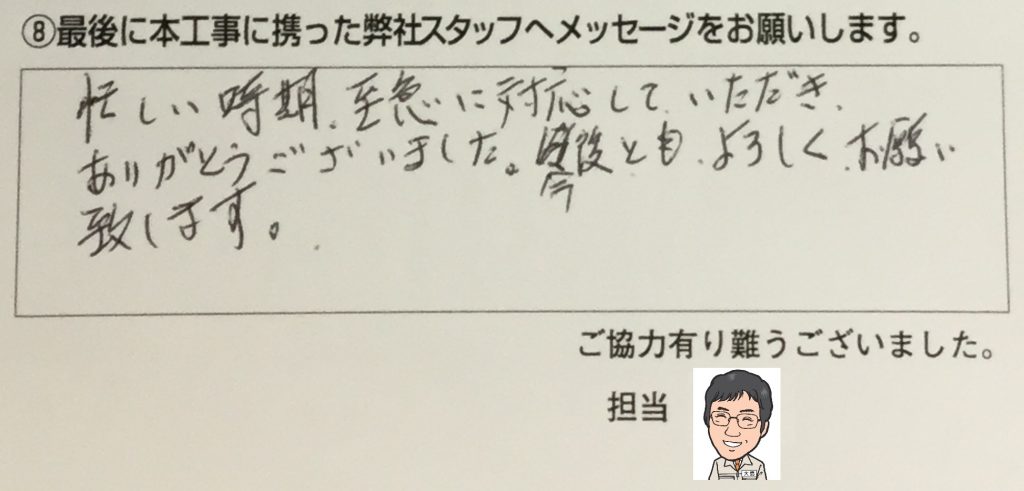 ⑧最後に本工事に携った弊社スタッフへメッセージをお願いします。
忙しい時期、至急に対応して、いただき、
ありがとうございました。今後とも、よろしく、お願い
致します。
ご協力有り難うございました。
担当